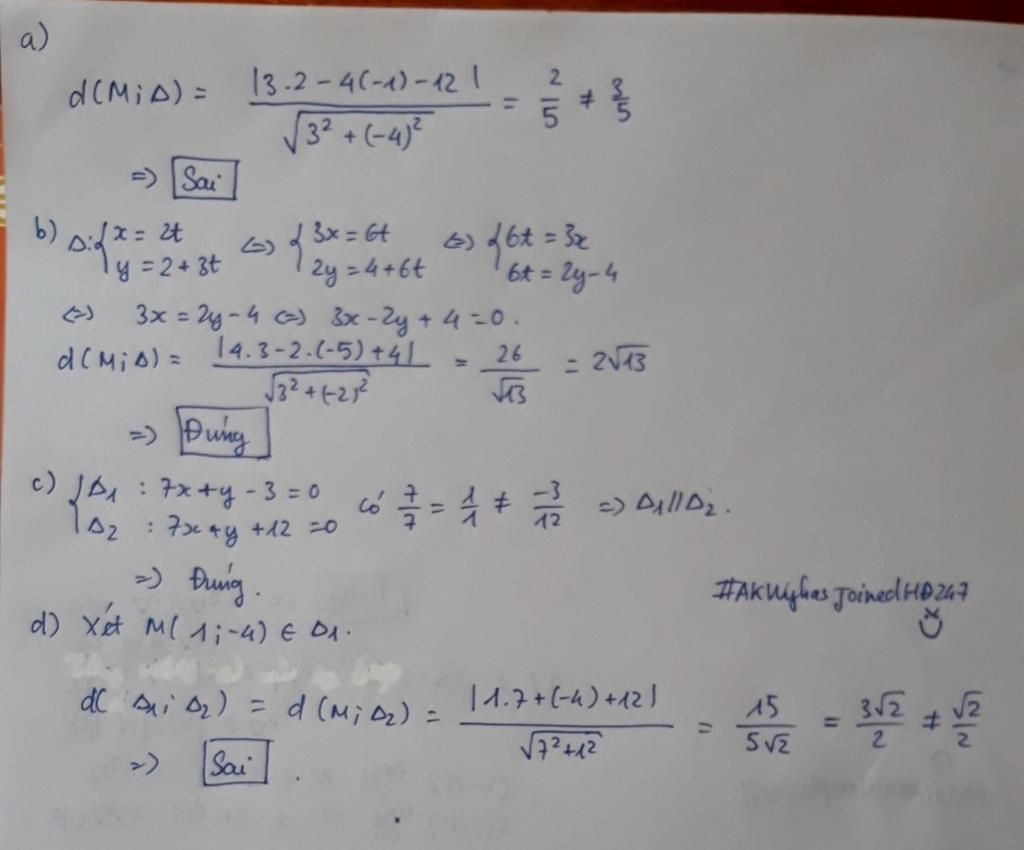 a)
d(M;Δ) = |3.2 - 4(-1) - 12| / √(3² + (-4)²) = 2/5 ≠ 3/5
=> Sai
b) Δ: { x = 2t ; y = 2 + 3t <=> { 3x = 6t ; 2y = 4 + 6t <=> { 6t = 3x ; 6t = 2y - 4
<=> 3x = 2y - 4 <=> 3x - 2y + 4 = 0.
d(M;Δ) = |4.3 - 2.(-5) + 4| / √(3² + (-2)²) = 26/√13 = 2√13
=> Đúng
c) { Δ1 : 7x + y - 3 = 0 ; Δ2 : 7x + y + 12 = 0 có 7/7 = 1/1 ≠ -3/12 => Δ1 // Δ2.
=> Đúng.
#AKWyhasJoinedHĐ247
d) Xét M(1;-4) ∈ Δ1.
d(Δ1;Δ2) = d(M;Δ2) = |1.7 + (-4) + 12| / √(7² + 1²) = 15/5√2 = 3√2/2 ≠ √2/2
=> Sai.